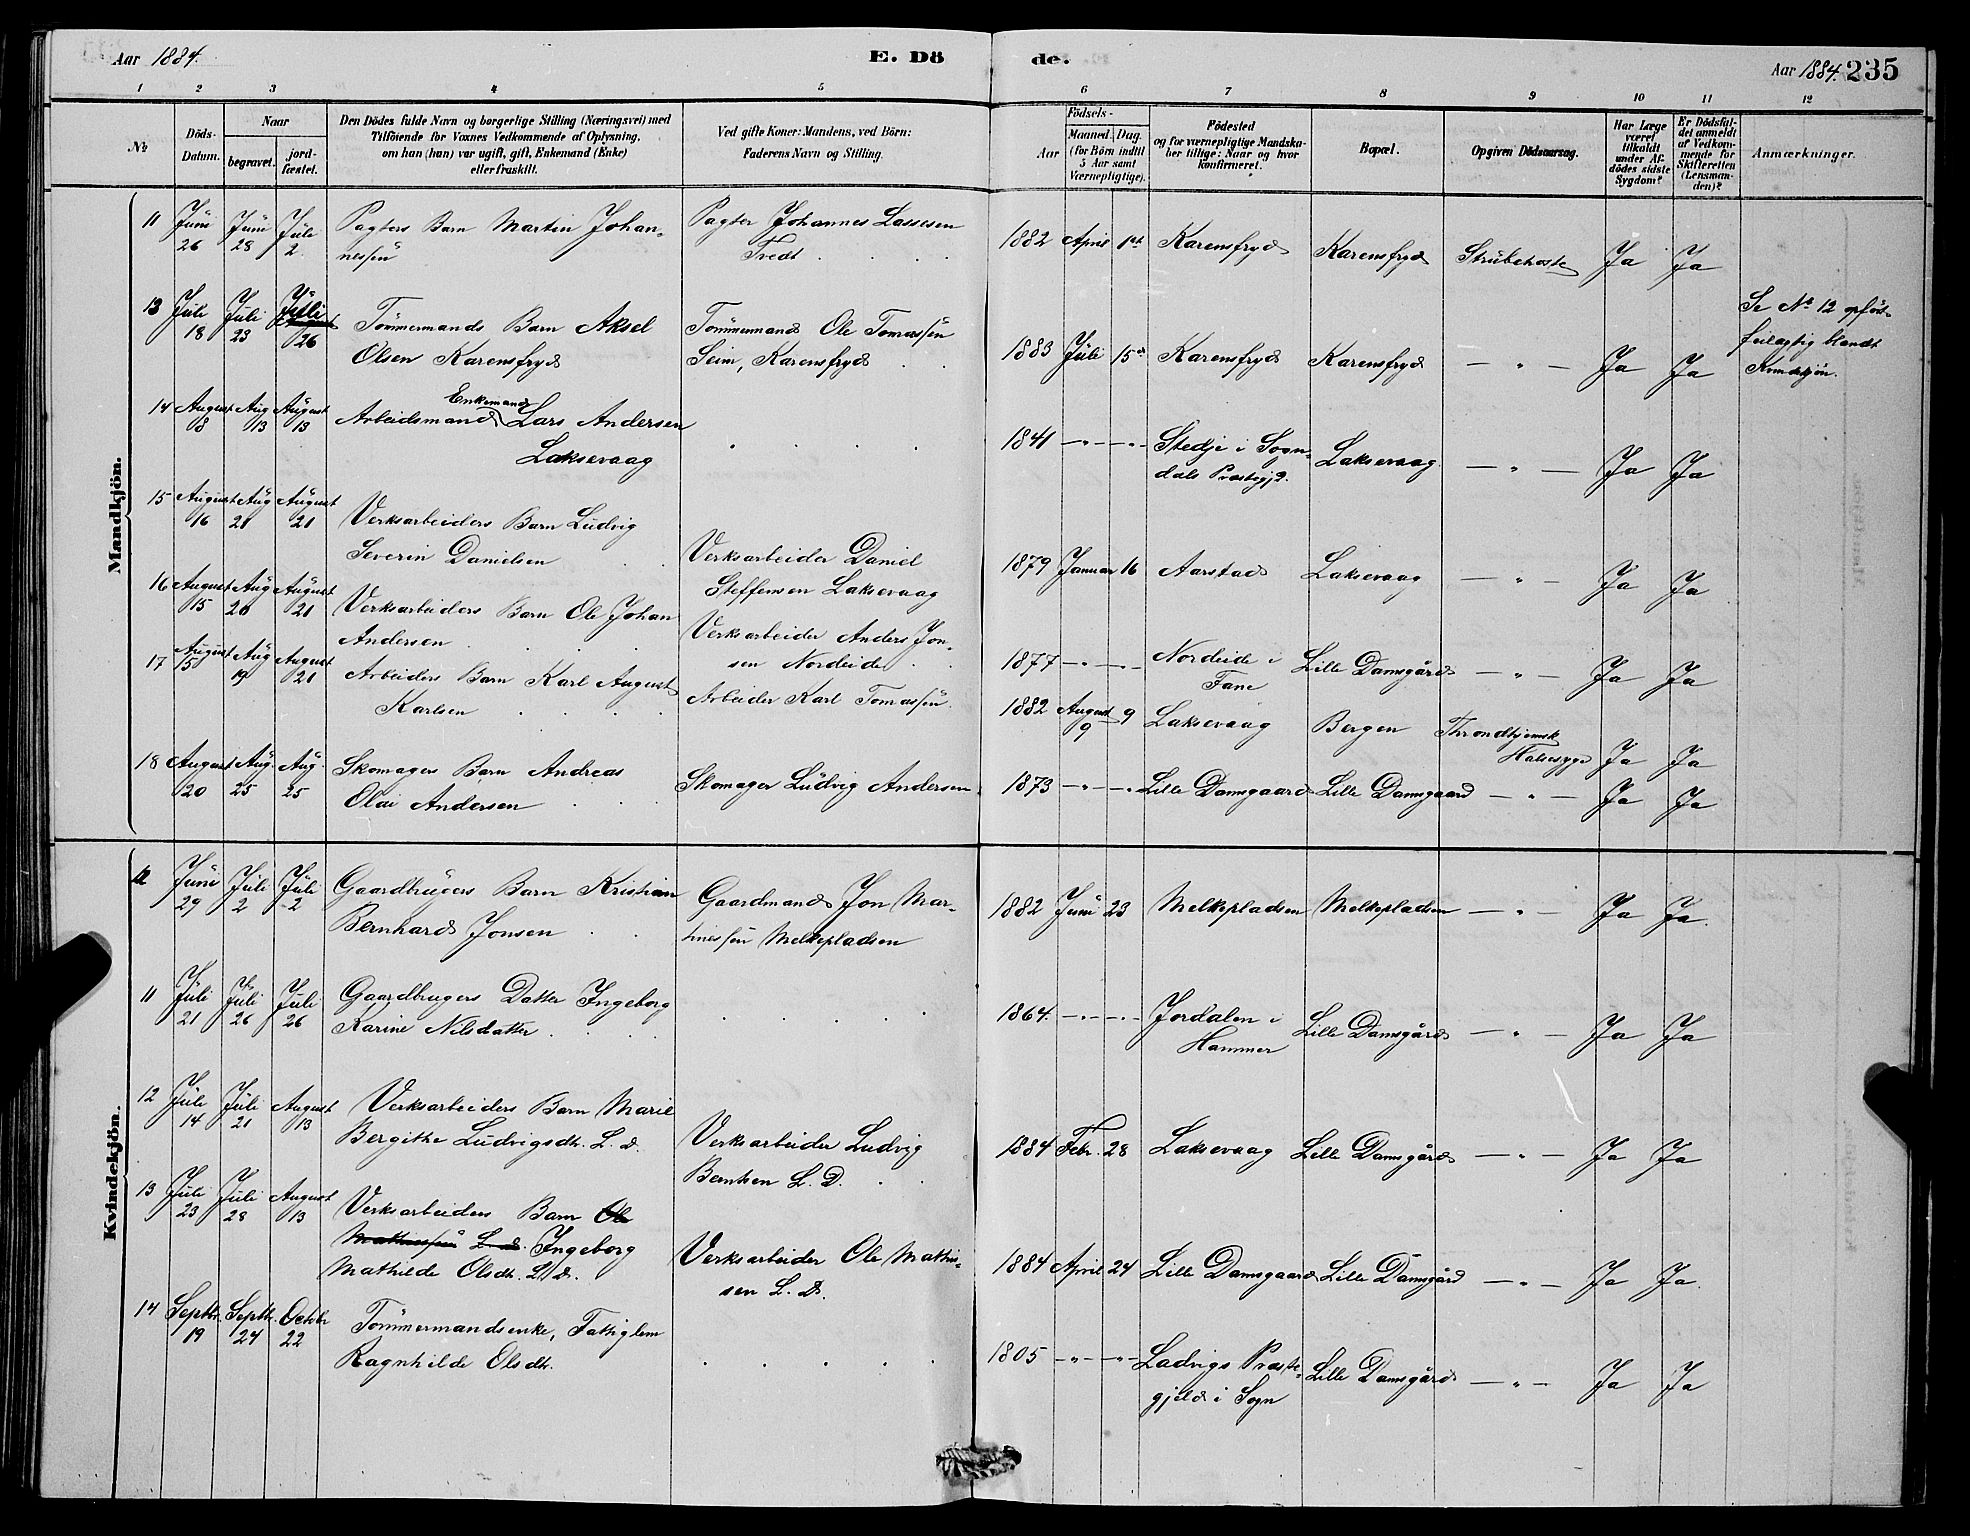 Aar 1884.
E. Dö
de.
Aar 1884. 235
1 2 3 4 5 6 7 8 9 10 11 12
№
Döds-
Datum.
Naar
begravet.
jord-
fæstet.
Den Dödes fulde Navn og borgerlige Stilling (Næringsvei) med
Tilföiende for Voxnes Vedkommende af Oplysning,
om han (hun) var ugift, gift, Enkemand (Enke)
eller fraskilt.
Ved gifte Koner: Mandens, ved Börn:
Faderens Navn og Stilling.
Födsels-
Aar
Maaned. Dag.
(for Börn indtil
5 Aar samt
Værnepligtige).
Födested
og for værnepligtige Mandska-
ber tillige: Naar og hvor
konfirmeret.
Bopæl.
Opgiven Dödsaarsag.
Har Læge
været
tilkaldt
under Af-
dödes sidste
Sygdom?
Er Dödsfal-
det anmeldt
af Vedkom-
mende for
Skifteretten
(Lensman-
den)?
Anmærkninger.
Mandkjön.
11 Juni 26 Juni 28 Juli 2 Pagters Barn Martin Johan-
nessen
Pagter Johannes Lassesen
Tvedt
1882 April 1st Karensfryd Karensfryd Strubehoste Ja Ja
13 Juli 18 Juli 23 Juli 26 Tömmermands Barn Aksel
Olsen Karensfryd
Tömmermand Ole Tomassen
Seim, Karensfryd
1883 Juli 15de Karensfryd Karensfryd — " — Ja Ja
Se No 12 opfört
feilagtig blandt
Kvindekjön.
14 August 8 Aug 13 August 13 Arbeidsmand Enkemand Lars Andersen
Laksevaag
1841 — " — " — Stedje i Sogn-
dals Præstegjd. Laksevaag — " — Ja Ja
15 August 16 Aug 21 August 21 Verksarbeiders Barn Ludvig
Severin Danielsen
Verksarbeider Daniel
Steffensen Laksevaag
1879 Januar 16 Aarstad Laksevaag — " — Ja Ja
16 August 15 Aug 20 August 21 Verksarbeiders Barn Ole Johan
Andersen
Verksarbeider Anders Jon-
sen Nordeide
1877 — " — " — Nordeide i
Fane Lille Damsgård — " — Ja Ja
17 August 15 Aug 19 August 21 Arbeiders Barn Karl August
Karlsen
Arbeider Karl Tomassen
1882 August 9 9 Laksevaag Bergen Throndhjemsk
Halssyge Ja Ja
18 August 20 Aug. 25 Aug. 25 Skomagers Barn Andreas
Olai Andersen
Skomager Ludvig Andersen
1873 — " — " Lille Damsgaard Lille Damsgaard — " — Ja Ja
Kvindekjön.
12 Juni 29 Juli 2 Juli 2 Gaardbrugers Barn Kristian
Bernhard Jonsen
Gaardmand Jon Mar-
tinessen Melkepladsen
1882 Juni 23 Melkepladsen Melkepladsen — " — Ja Ja.
11 Juli 21 Juli 26 Juli 26 Gaardbrugers Datter Ingeborg
Karine Nilsdatter
1864. — " — " — Jordalen i
Hammer Lille Damsgård — " — Ja Ja
12 Juli 14 Juli 21 August 13 Verksarbeiders Barn Marie
Bergithe Ludvigsdtr. L. D.
Verksarbeider Ludvig
Bentsen L. D.
1884 Febr. 28 Laksevaag Lille Damsgård — " — Ja Ja
13 Juli 23 Juli 28 August 13 Verksarbeiders Barn Ole
Mathiessen L. D. Ingeborg
Mathilde Olsdtr. L. D.
Verksarbeider Ole Mathis-
sen L. D.
1884 April 24 Lille Damsgaard Lille Damsgård — " — Ja Ja.
14 Septbr. 19 Septbr. 24 Octobr 22 Tömmermandsenke, Fattiglem
Ragnhilde Olsdtr.
1805 — " — " — Ladvigs Præste-
gjeld i Sogn Lille Damsgård — " — Ja Ja